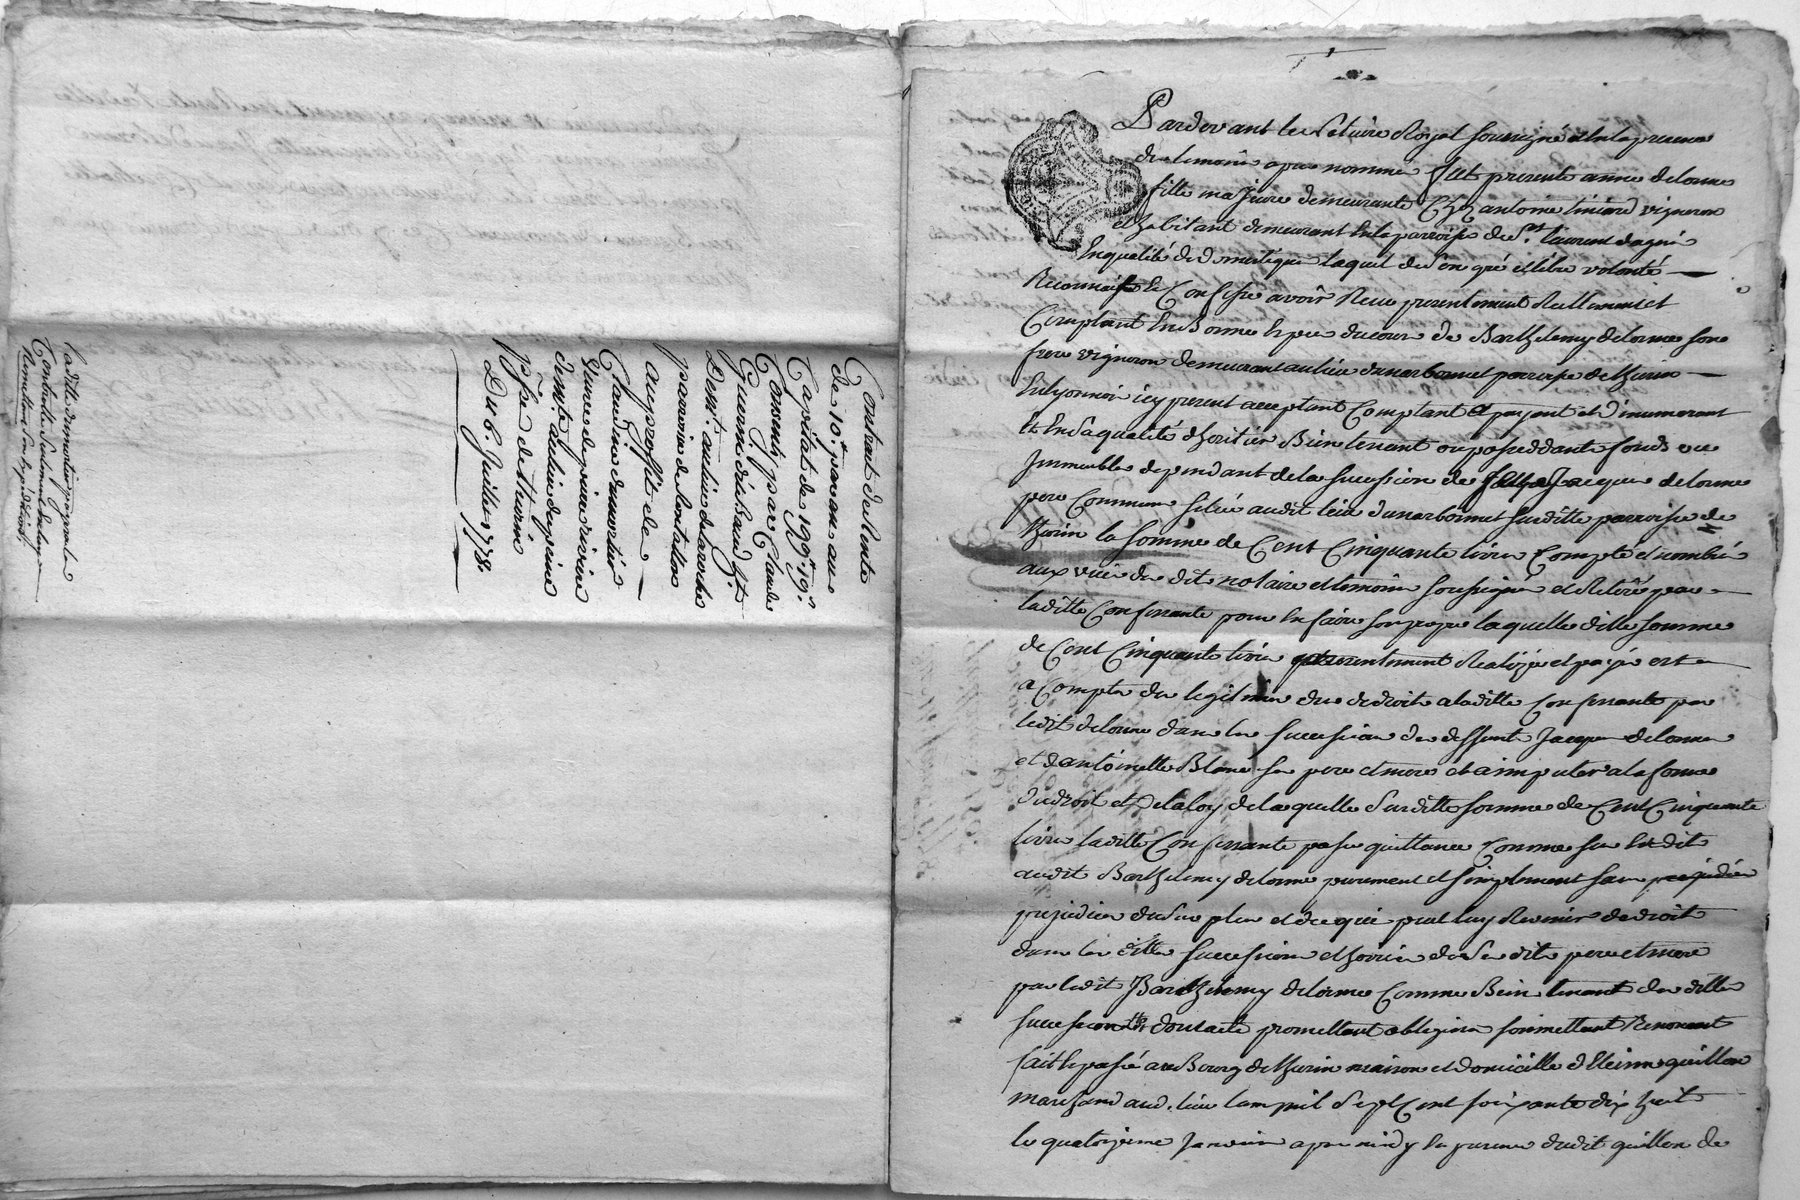 Contrat de Rente
de 10.ᵗ par an au
Capital de 199.ᵗ 19.ˢ
Consenti par Claude
Guerin dit Baud h.ᵗ
Demt. au lieu de laroche
parroisse de Rontallon
au proffit de
Claudine dumortier
veuve de pierre riviere
demte. au lieu depinne
psse de thurin
Du 6. Juillet 1778.
laditte dumortier payera le
Controlle
Remettra Son Expedition.
Pardevant le Notaire Royal soussigné et En la presence
des temoins apres nommes fut presente anne delorme
fille majeure demeurante Chez antoine vigneron
et habitant demeurant En la parroisse de St. laurent dagni
En qualité de domestique laquel de Son gré et libre volonté
Reconnait et Confesse avoir Receu presentement Reellement et
Comptant En Bonne Espece du cour de Barthelemy delorme son
frere vigneron demeurant au lieu dunarbonnet parroisse de thurin
En lyonnois icy present acceptant Comptant et payant et Denumerant
Et En Sa qualité dheritier Bien tenant ou posseddant fonds ou
Immeubles dependant de la succession de Jacques delorme
pere Commun situé audit lieu dunarbonnet Susditte parroisse de
thurin la somme de Cent Cinquante livres Compté et nombré
aux vües du dit notaire et temoins soussignés et Retiré par
laditte Confessante pour En faire son propre laquelle ditte somme
de Cent Cinquante livres presentement Realizée et payée est
a Compte du legitime due de droits a laditte Confessante par
ledit delorme dans les successions de deffunts Jacques delorme
et dantoinette Blanc ses pere et mere et a imputer a la forme
du droit et De la loy de laquelle Susditte somme de Cent Cinquante
livres laditte Confessante passe quittance Comme sus Est dit
audit Barthelemy delorme purement et simplement sans prejudice
prejudice du Sur plus et de ce qui peut luy Revenir de droit
dans les dittes successions et hoiries de Ses dits pere et mere
par ledit Barthelemy delorme Comme Bien tenant des dittes
successions dont acte promettant obligeant soumettant Renonceant
fait et passé au Bourg de thurin maison et domicille dEtienne guillon
marchand aud. lieu lan mil Sept Cent soixante dix huit
le quatorzieme Janvier apres midy En presence dudit guillon de